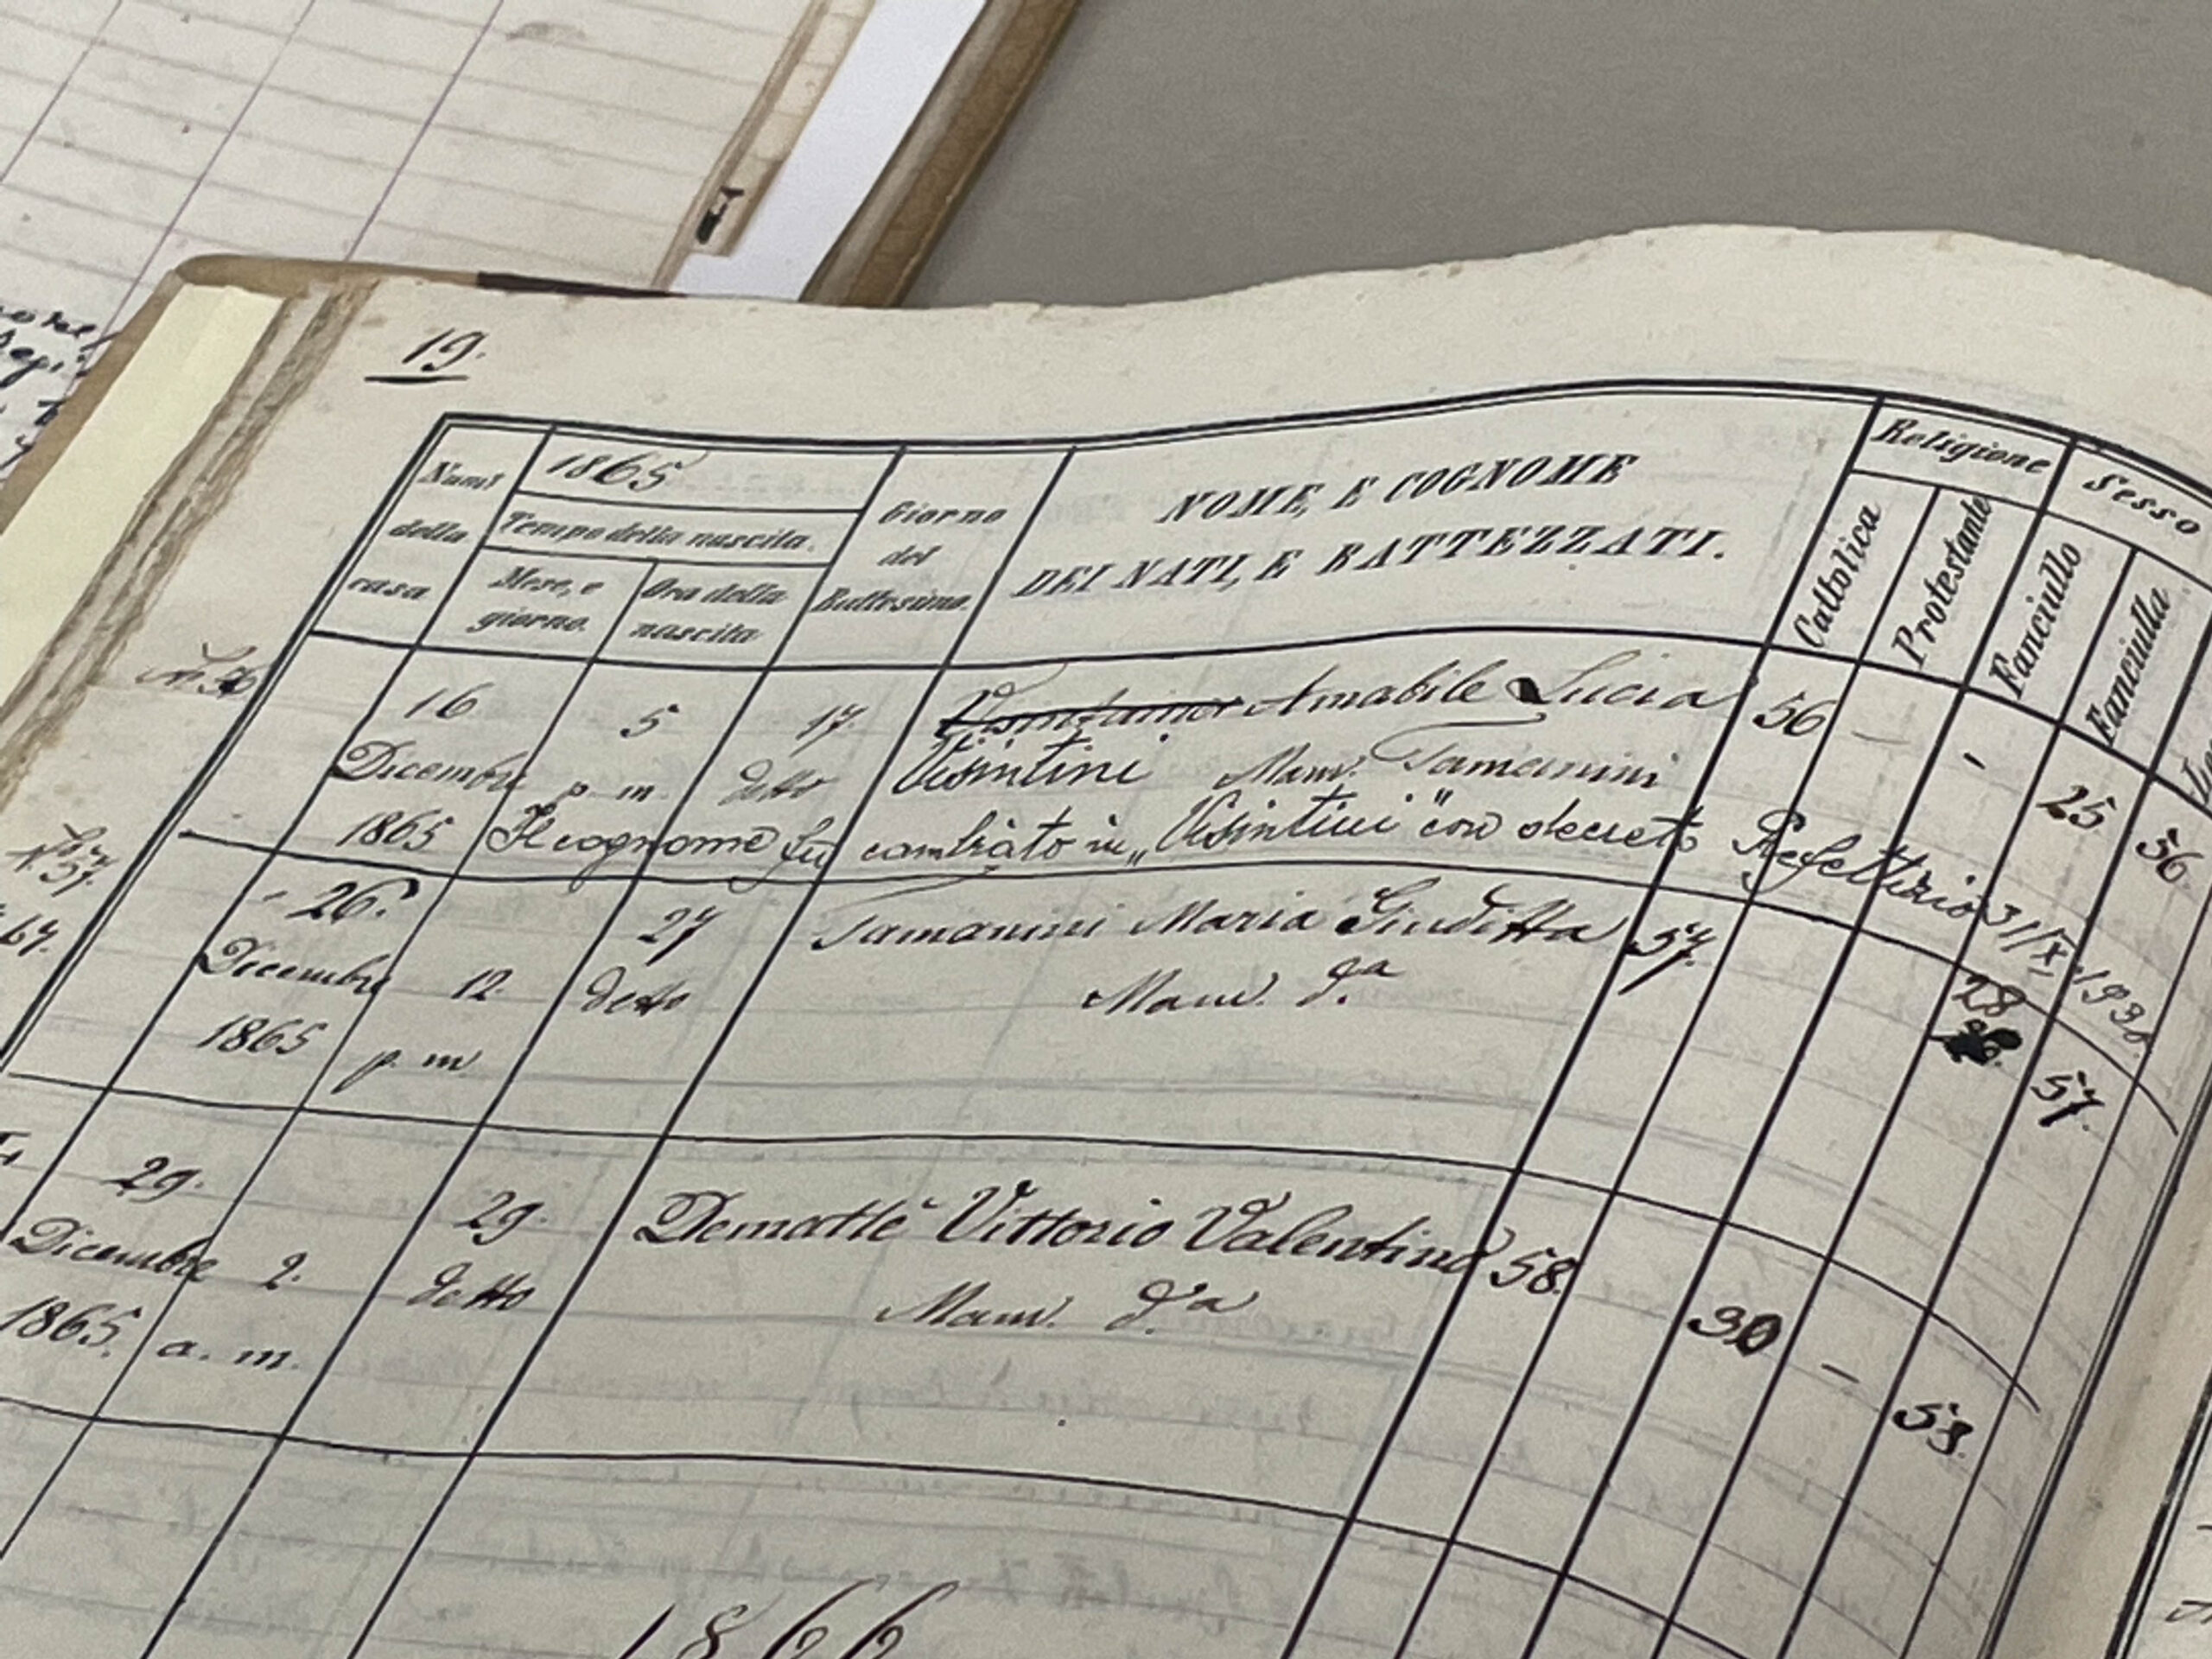 19.
Num?
della
casa
1865
Tempo della nascita.
Mese, e
giorno.
Ora della
nascita
Giorno
del
Battesimo.
NOME, E COGNOME
DEI NATI, E BATTEZZATI.
Religione
Cattolica
Protestante
Sesso
Fanciullo
Fanciulla
16
Dicembre
1865
5
p. m.
17.
detto
Amabile Lucia
Visintini Mamm. Tamanini
56 - - 25 56
Il cognome fu cambiato in „Visintini" con decreto Prefettizio 31/X/193
N. 57.
67.
26.
Dicembre
1865
12.
p. m.
27
detto
Tamanini Maria Giuditta
Mam. d.a
57.
28
57.
29.
Dicembre
1865.
2.
a. m.
29.
detto
Demattè Vittorio Valentino
Mam. d.a
58.
30 - 53.
1866